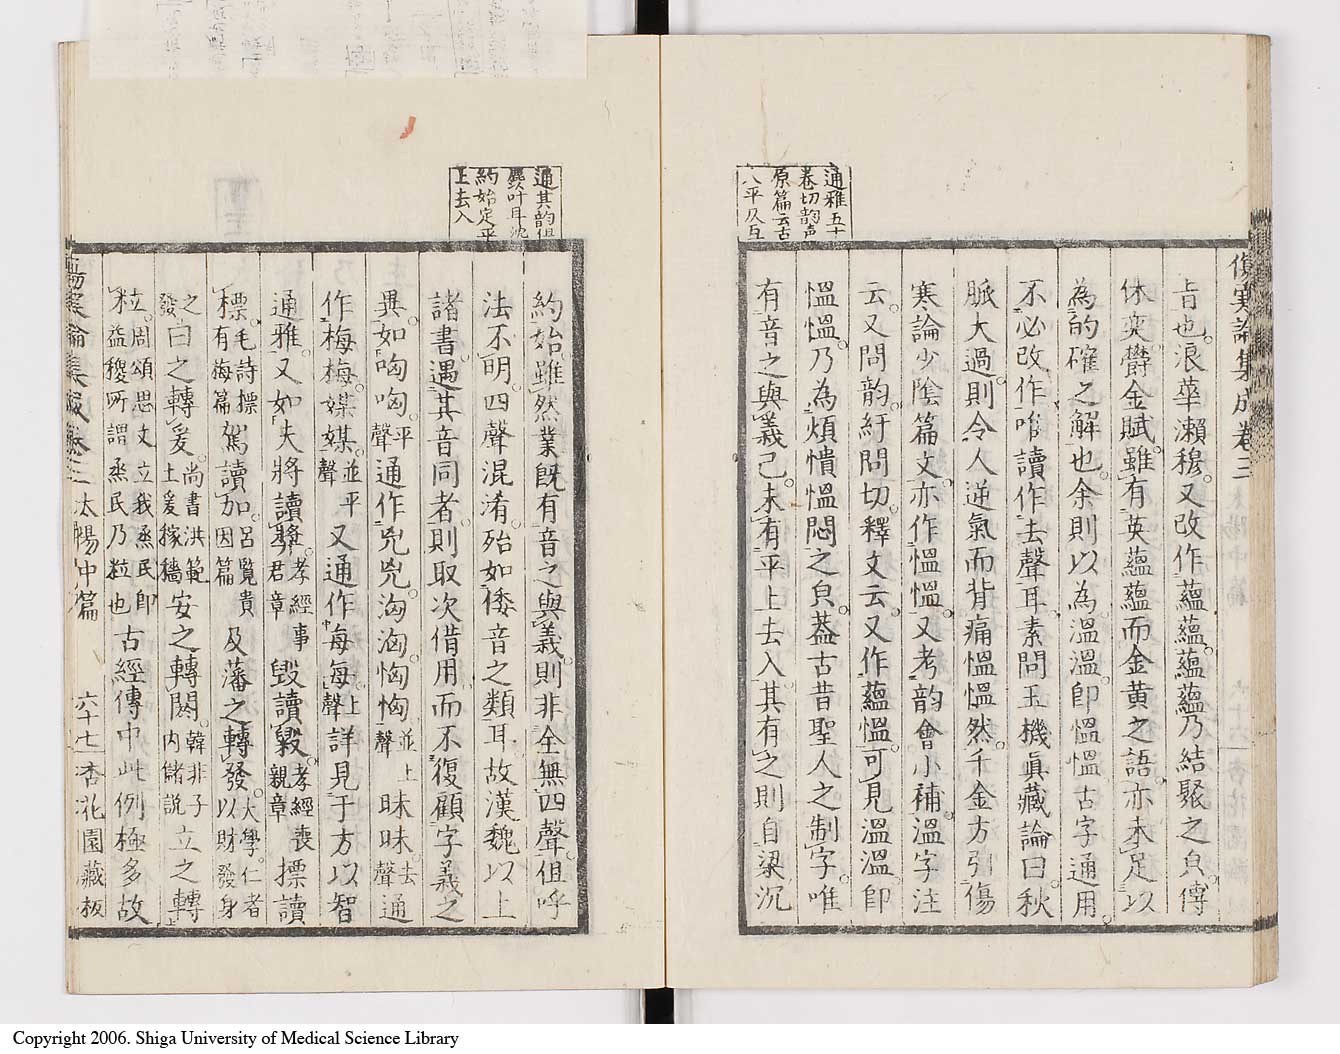 傷寒論集成卷三
通雅五十
卷切韵声
原篇云古
人平仄互
旨也浪華瀨穆又改作蘊蘊蘊蘊乃結聚之皃傳
休奕欝金賦雖有英蘊蘊而金黃之語亦未足以
為的確之解也余則以為溫溫即愠愠古字通用
不必改作唯讀作去聲耳素問玉機眞藏論曰秋
脈大過則令人逆氣而背痛愠愠然千金方引傷
寒論少陰篇文亦作愠愠又考韵會小補溫字注
云又問韵紆問切釋文云又作蘊愠可見溫溫即
愠愠乃為煩憒愠悶之皃葢古昔聖人之制字唯
有音之與義已未有平上去入其有之則自梁沉
通其韵但
與叶耳沈
約始定平
上去入
約始雖然業旣有音之與義則非全無四聲但呼
法不明四聲混淆殆如倭音之類耳故漢魏以上
諸書遇其音同者則取次借用而不復顧字義之
異如哅哅平聲通作兇兇洶洶恟恟並上聲昧昧去聲通
作梅梅媒媒並平聲又通作每每上聲詳見于方以智
通雅又如夫將讀奬孝經事君章毀讀毇孝經喪親章摽讀
標毛詩摽有梅篇駕讀加呂覽貴因篇及藩之轉發大學仁者以財發身
發之曰之轉爰尚書洪範土爰稼穡安之轉閼韓非子內儲說立之轉
粒周頌思文立我烝民即粒益稷所謂烝民乃粒也古經傳中此例極多故
傷寒論集成卷三 太陽中篇 六十七 杏花園藏板
Copyright 2006. Shiga University of Medical Science Library